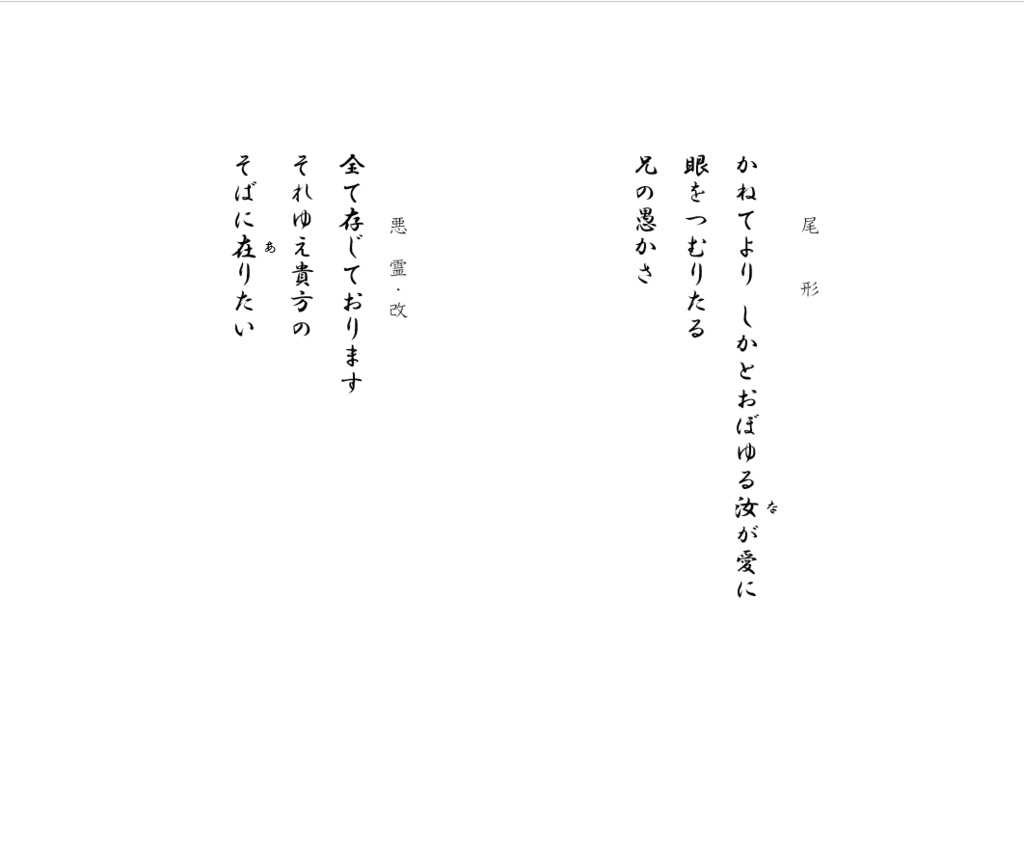 尾形
かねてより しかとおぼゆる汝が愛に
な
眼をつむりたる
兄の愚かさ
悪霊・改
全て存じております
それゆえ貴方の
そばに在りたい
あ